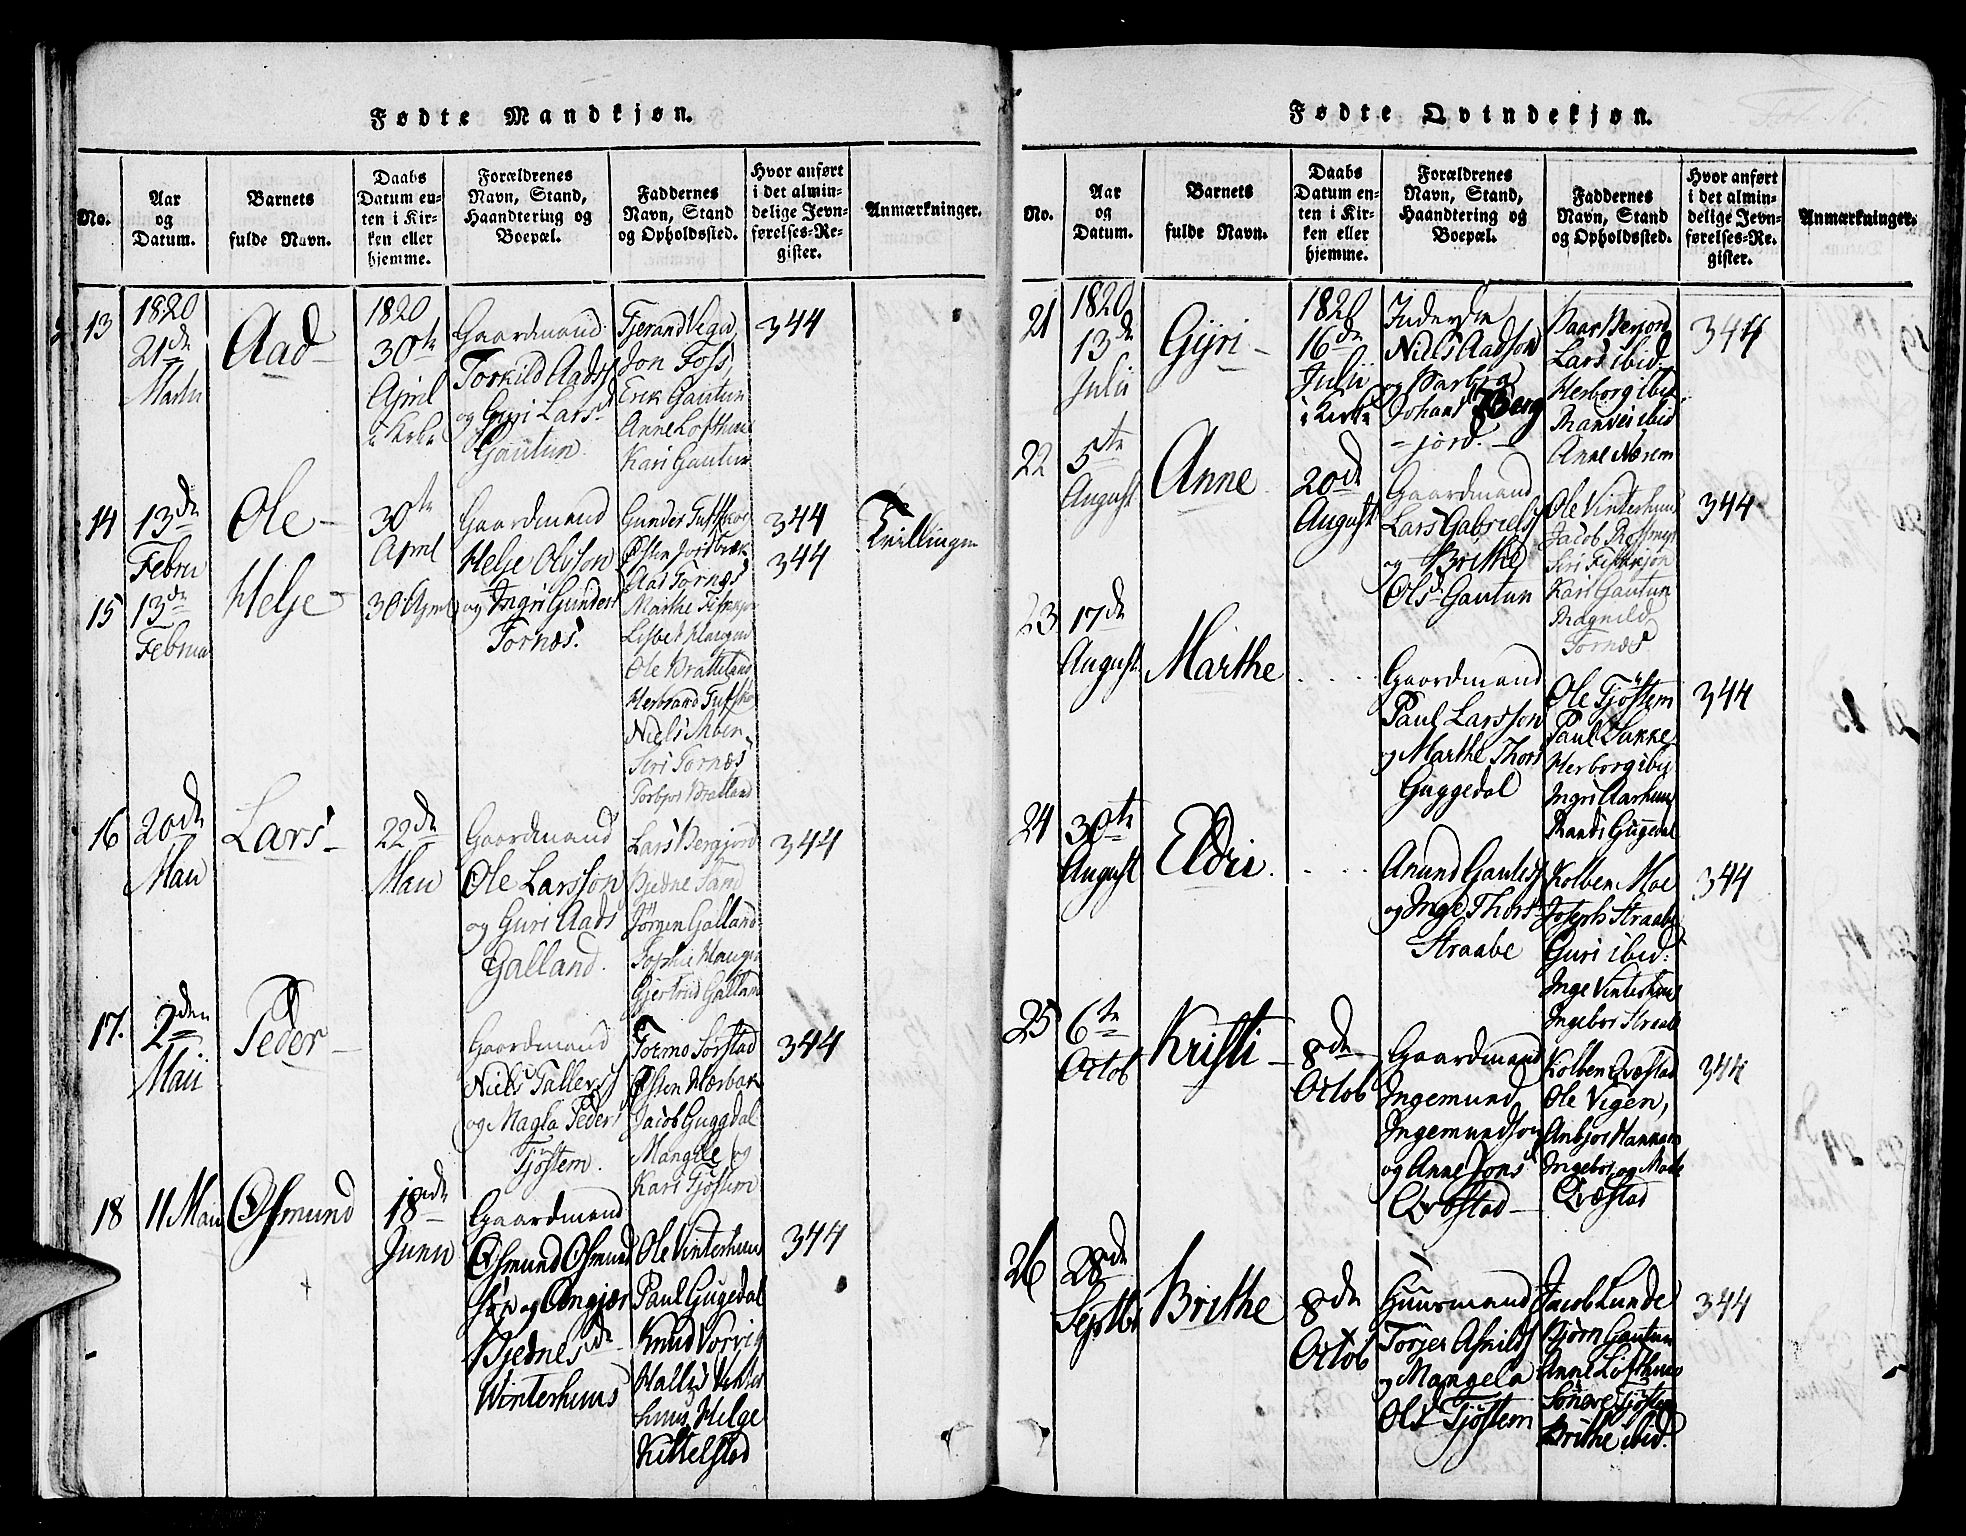 Fødte Mandkjøn.
No.
Aar
og
Datum.
Barnets
fulde Navn.
Daabs
Datum en-
ten i Kir-
ken eller
hjemme.
Forældrenes
Navn, Stand,
Haandtering og
Boepæl.
Faddernes
Navn, Stand
og Opholdssted.
Hvor anført
i det almin-
delige Jevn-
førelses-Re-
gister.
Anmærkninger.
13
1820
21de
Martii
Aad
1820
30te
April
i Kirke
Gaardmand
Torkild Aads
og Guri Lars
Gautun
Tjerand Vega
Jon Foss,
Erik Gautun
Anne Lofthuus
Kari Gautun
344
14
13de
Febru
Ole
30te
April
Gaardmand
Helje Olsson
og Ingri Gunders
Fornæs.
Gunder
Østen
Aad Fornæs
344
344
Tvillinger
15
13de
Februa
Helje
30 April
Marthe
Lisbet Haugen
Ole Bratteland
Herbrand
Niels
Siri Fornæs
Torbjør Bratland
16
20de
Maii
Lars
22de
Maii
Gaardmand
Ole Larsson
og Guri Aads
Galland.
Lars Bergjord
Bjedne Sand
Jörgen Galland
Sophie Haugen
Gjertrud Galland
344
17.
2den
Maii
Peder
Gaardmand
Niels Tallers
og Magla Peders
Tjöstem.
Tormo Sørstad
Østen Hærbak
Jacob Guggdal
Mangele og
Kari Tjöstem
344
18
11 Maii
Osmund
18de
Junii
Gaardmand
Osmund Osmund
søn og Angjær
Bjednesd
Winterhuus
Ole Vinterhuus
Paul Gugedal
Knud Vorvig
Halli Vinter
huus, Helge
Kittelstad
344
Fødte Qvindekjøn.
No.
Aar
og
Datum.
Barnets
fulde Navn.
Daabs
Datum en-
ten i Kir-
ken eller
hjemme.
Forældrenes
Navn, Stand,
Haandtering og
Boepæl.
Faddernes
Navn, Stand
og Opholdssted.
Hvor anført
i det almin-
delige Jevn-
førelses-Re-
gister.
Anmærkninger.
21
1820
13de
Julii
Gyri
1820
16de
Julii
i Kirke
Inderste
Niels Aadson
og Barbra
Johans Berg
jord.
Baar Berjord
Lars ibid
Herborg ibid
Ranvei ibid
Anne Nærem
344
22
5te
August
Anne
20de
August
Gaardmand
Lars Gabriels
og Brithe
Ols Gautun
Ole Vinterhuus
Jacob
Siri
Kari Gautun
Ragnild
Fornæs
344
23
17de
August
Marthe
. . . .
Gaardmand
Paul Larsson
og Marthe Thors
Guggedal
Ole Tjöstem
Paul Bakke
Herborg iby
Ingri Aarhuus
Randi Gugedal
344
24
30te
August
Eldri
. . . .
Anund Gautes
og Inge Thors
Straabe
Kolben Moe
Joseph Straabe
Guri ibid:
Inge Vinterhuus
Ingebor Straabe
344
25
6te
Octob
Kristi
8de
Octob
Gaardmand
Ingemund
Ingemundson
og Anne Jons
Qvæstad
Kolben Qvæstad
Ole Vigen,
Anbjor Hannem
Ingebor og Marte
Qvæstad
344
26
28de
Septbr
Brithe
8de
Octob
Huusmand
Torjer Asnilds
og Mangela
Ols Tjöstem
Jacob Lunde
Bjørn Gautun
Anne Lofthuus
Sønave Tjöstem
Brithe ibid.
344